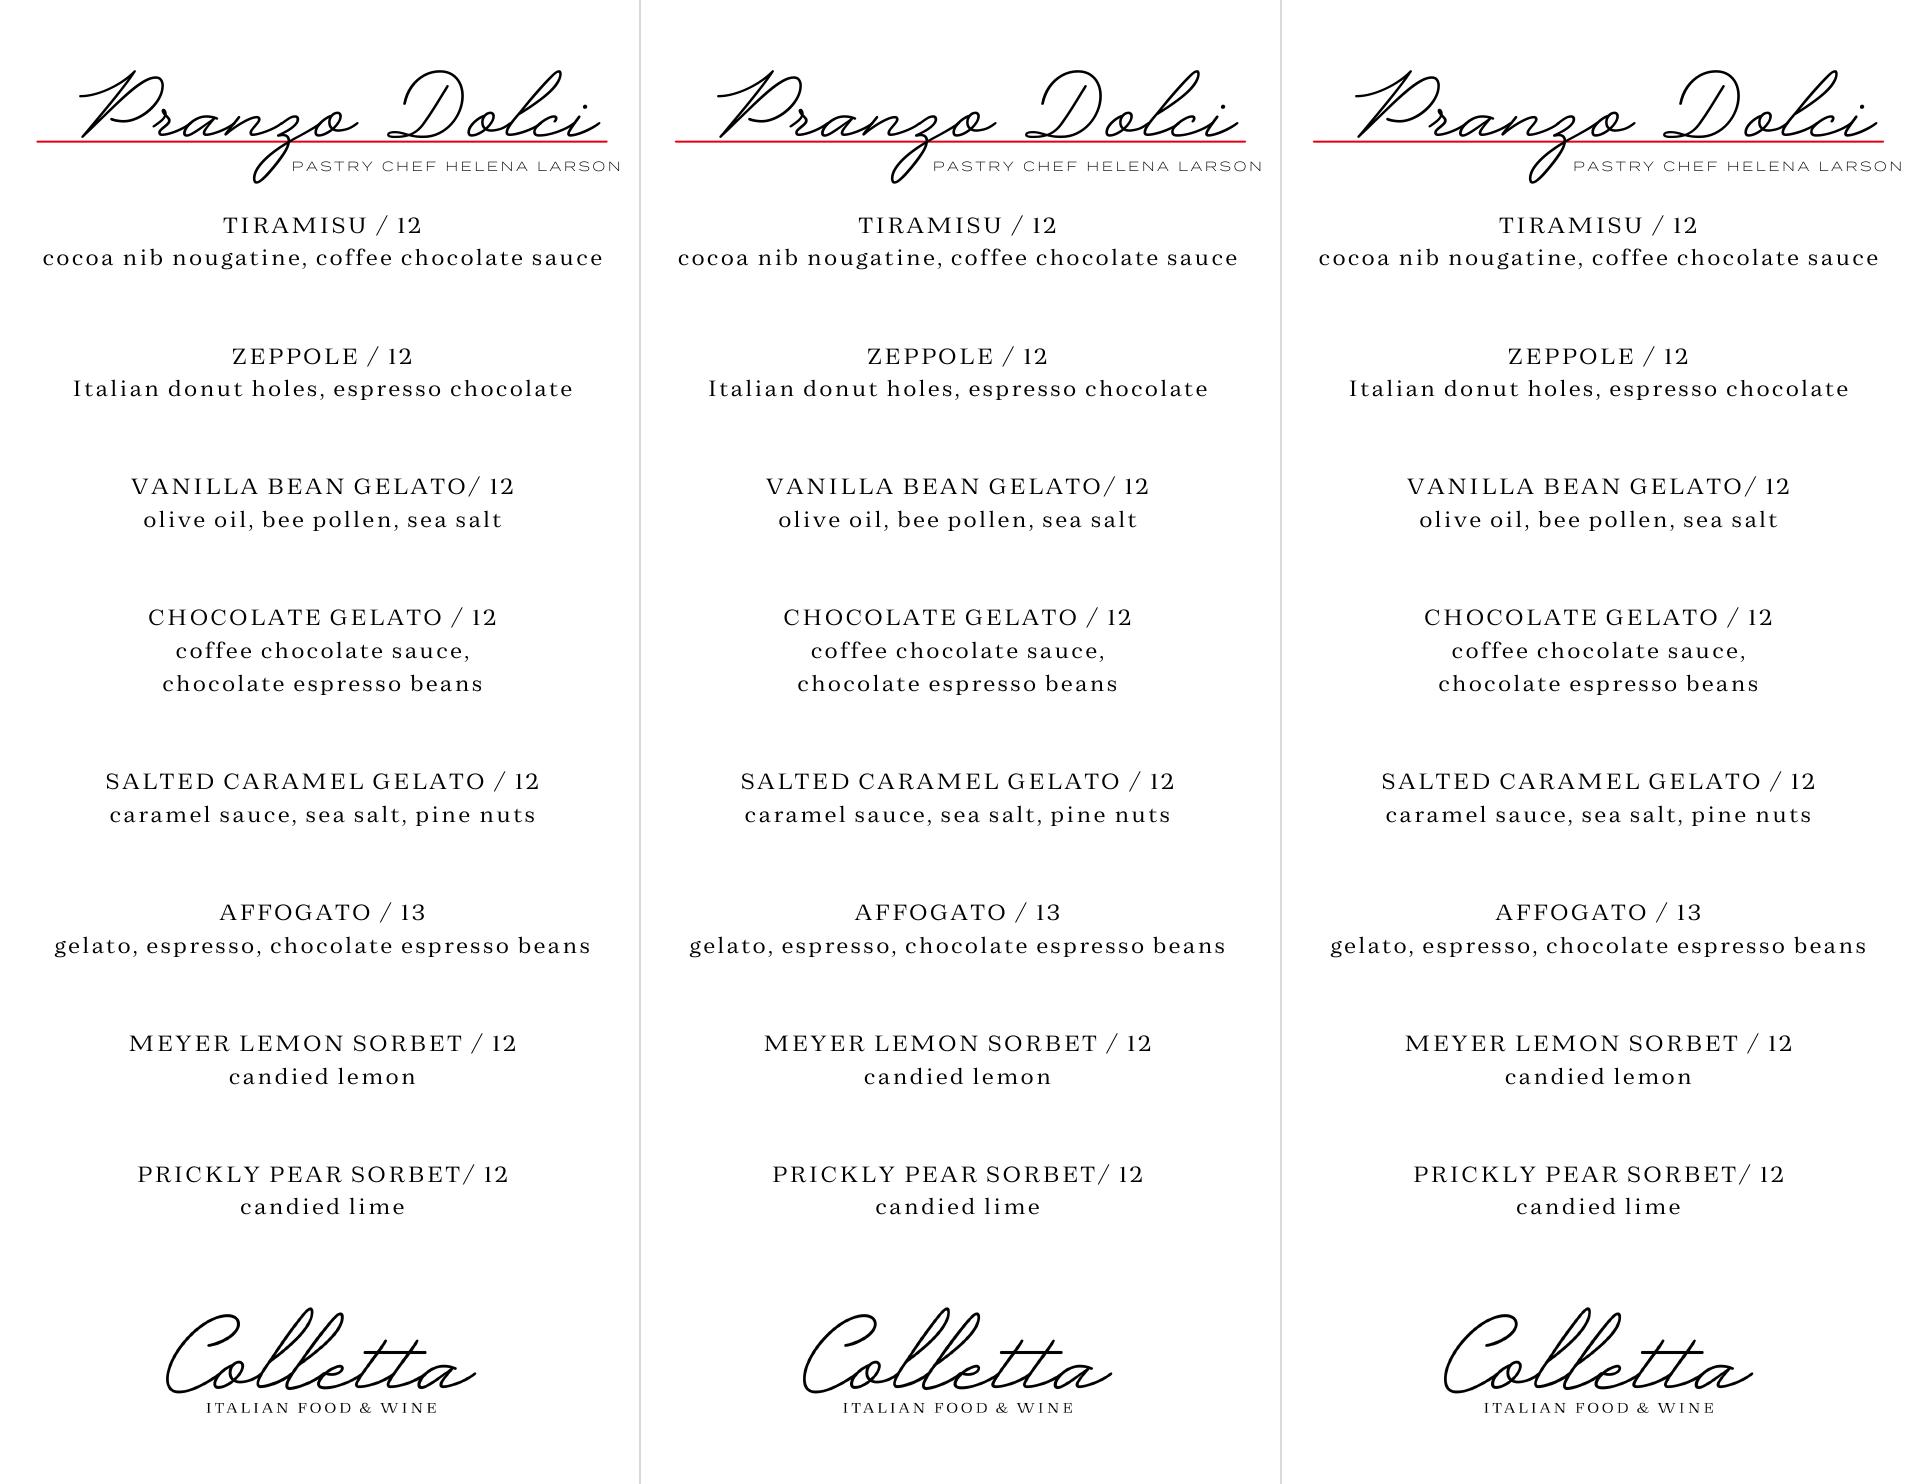 Pranzo Dolci
PASTRY CHEF HELENA LARSON
TIRAMISU / 12
cocoa nib nougatine, coffee chocolate sauce
ZEPPOLE / 12
Italian donut holes, espresso chocolate
VANILLA BEAN GELATO/ 12
olive oil, bee pollen, sea salt
CHOCOLATE GELATO / 12
coffee chocolate sauce,
chocolate espresso beans
SALTED CARAMEL GELATO / 12
caramel sauce, sea salt, pine nuts
AFFOGATO / 13
gelato, espresso, chocolate espresso beans
MEYER LEMON SORBET / 12
candied lemon
PRICKLY PEAR SORBET/ 12
candied lime
Colletta
ITALIAN FOOD & WINE
Pranzo Dolci
PASTRY CHEF HELENA LARSON
TIRAMISU / 12
cocoa nib nougatine, coffee chocolate sauce
ZEPPOLE / 12
Italian donut holes, espresso chocolate
VANILLA BEAN GELATO/ 12
olive oil, bee pollen, sea salt
CHOCOLATE GELATO / 12
coffee chocolate sauce,
chocolate espresso beans
SALTED CARAMEL GELATO / 12
caramel sauce, sea salt, pine nuts
AFFOGATO / 13
gelato, espresso, chocolate espresso beans
MEYER LEMON SORBET / 12
candied lemon
PRICKLY PEAR SORBET/ 12
candied lime
Colletta
ITALIAN FOOD & WINE
Pranzo Dolci
PASTRY CHEF HELENA LARSON
TIRAMISU / 12
cocoa nib nougatine, coffee chocolate sauce
ZEPPOLE / 12
Italian donut holes, espresso chocolate
VANILLA BEAN GELATO/ 12
olive oil, bee pollen, sea salt
CHOCOLATE GELATO / 12
coffee chocolate sauce,
chocolate espresso beans
SALTED CARAMEL GELATO / 12
caramel sauce, sea salt, pine nuts
AFFOGATO / 13
gelato, espresso, chocolate espresso beans
MEYER LEMON SORBET / 12
candied lemon
PRICKLY PEAR SORBET/ 12
candied lime
Colletta
ITALIAN FOOD & WINE